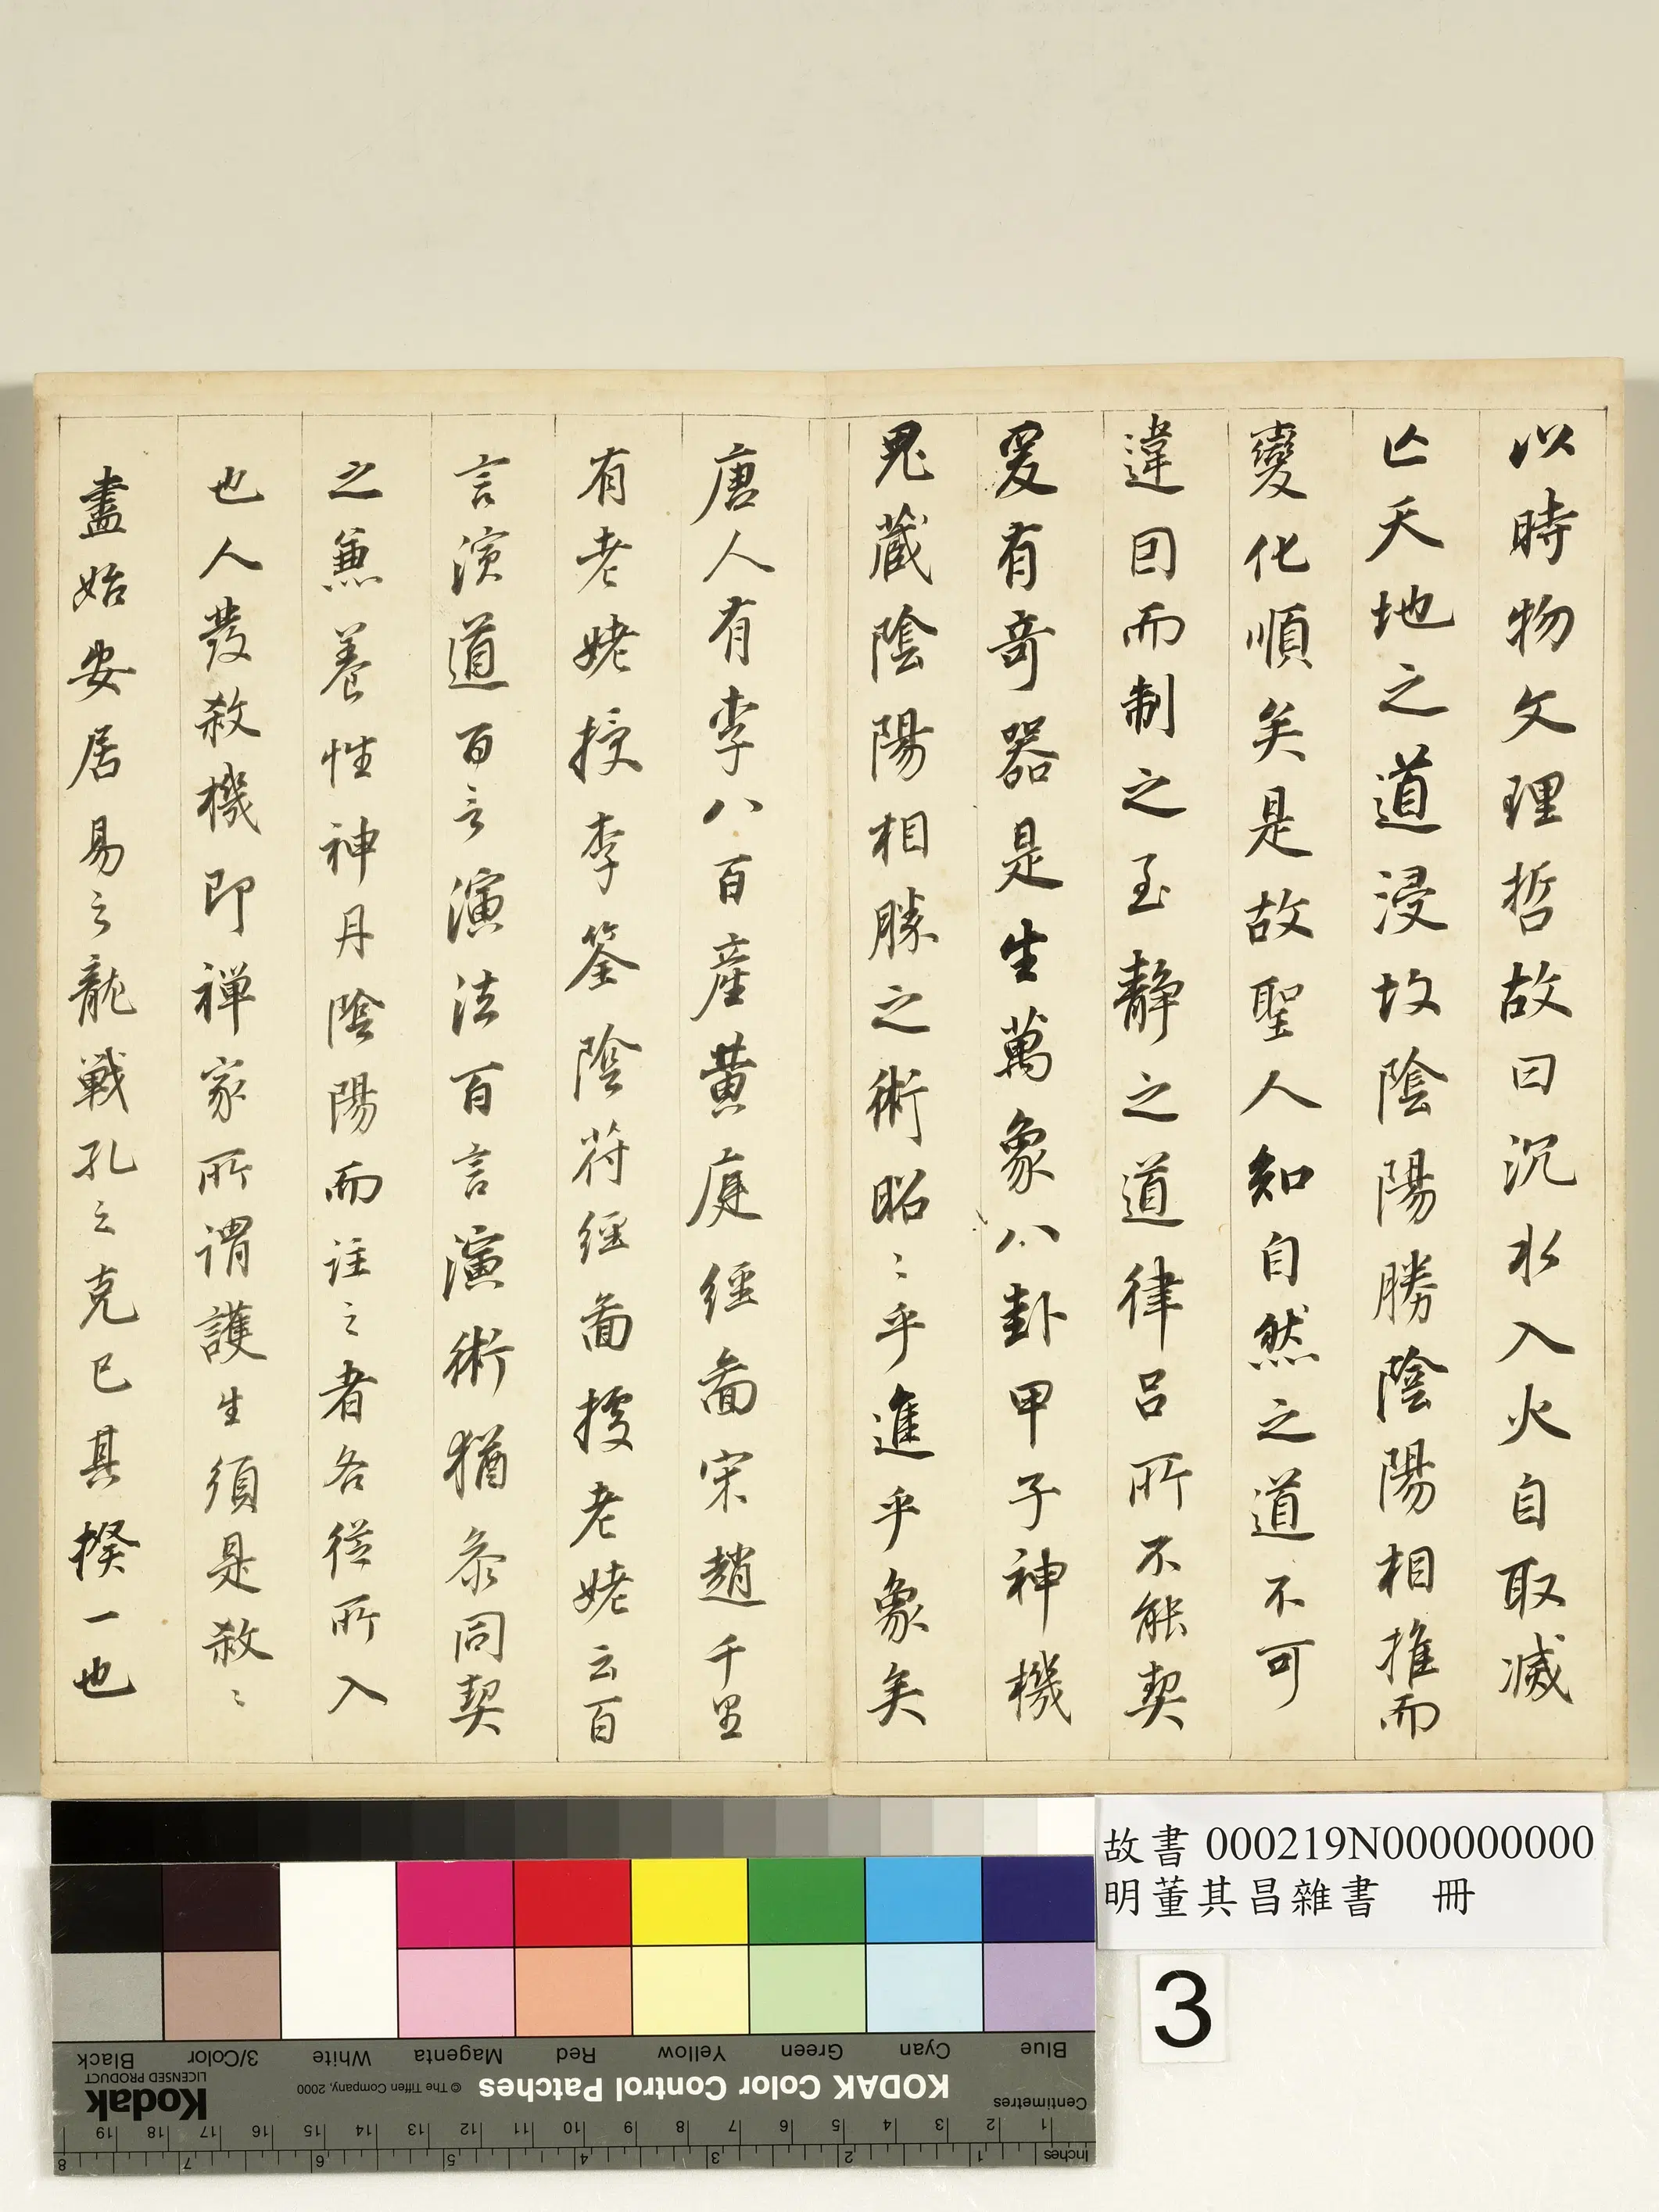 以時物文理哲故曰沉水入火自取滅
亡天地之道浸故陰陽勝陰陽相推而
變化順矣是故聖人知自然之道不可
違因而制之至靜之道律呂所不能契
爰有奇器是生萬象八卦甲子神機
鬼藏陰陽相勝之術昭〻乎進乎象矣
唐人有李八百產黃庭經啚宋趙千里
有老姥授李筌陰符經啚授老姥云百
言演道百言演法百言演術猶叅同契
之兼養性神丹陰陽而註之者各從所入
也人發殺機即禪家所謂護生須是殺〻
盡始安居易之龍戰孔之克已其揆一也
故書 000219N000000000
明董其昌雜書 冊
3
Blue Cyan Green Yellow Red Magenta White 3/Color Black
KODAK Color Control Patches © The Tiffen Company, 2000 Kodak LICENSED PRODUCT
Centimetres 1 2 3 4 5 6 7 8 9 10 11 12 13 14 15 16 17 18 19
Inches 1 2 3 4 5 6 7 8